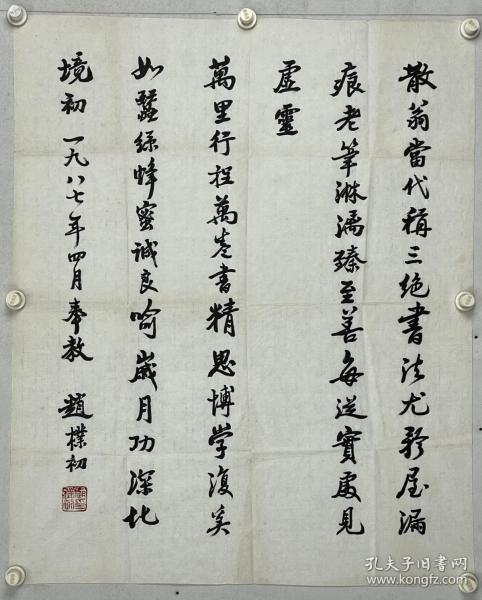 散翁當代稱三絶書法尤矜屋漏
痕老筆淋漓臻至善每從實處見
虛靈
萬里行程萬卷書精思博學復奚
如蠶絲蜂蜜誠良喻歲月功深化
境初 一九八七年四月奉教 趙樸初
孔夫子旧书网
www.kongfz.com